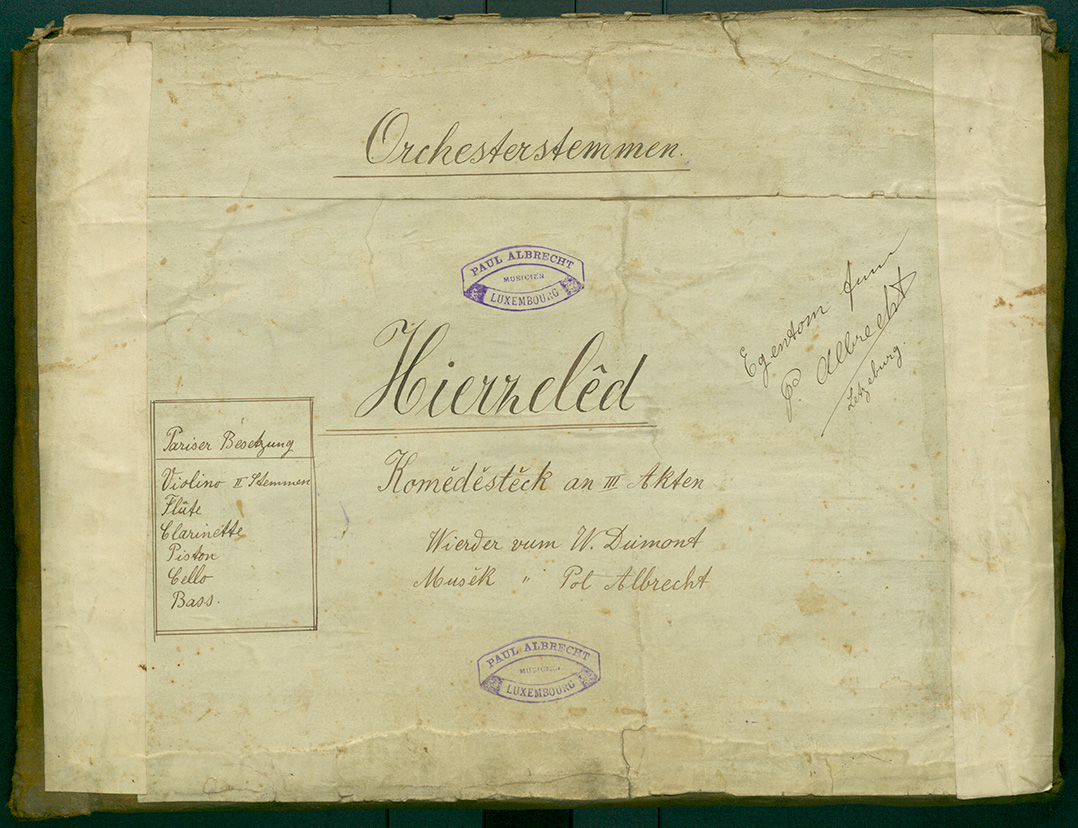 Orchesterstemmen.
PAUL ALBRECHT
MUSICIEN
LUXEMBOURG
Egentom vum
P. Albrecht
Letzeburg.
Hierzelêd
Pariser Besetzung
Violino II Stemmen
Flûte
Clarinette
Piston
Cello
Bass.
Komĕdĕstĕck an III Akten
Wierder vum W. Dumont
Musĕk " Pol Albrecht
PAUL ALBRECHT
MUSICIEN
LUXEMBOURG